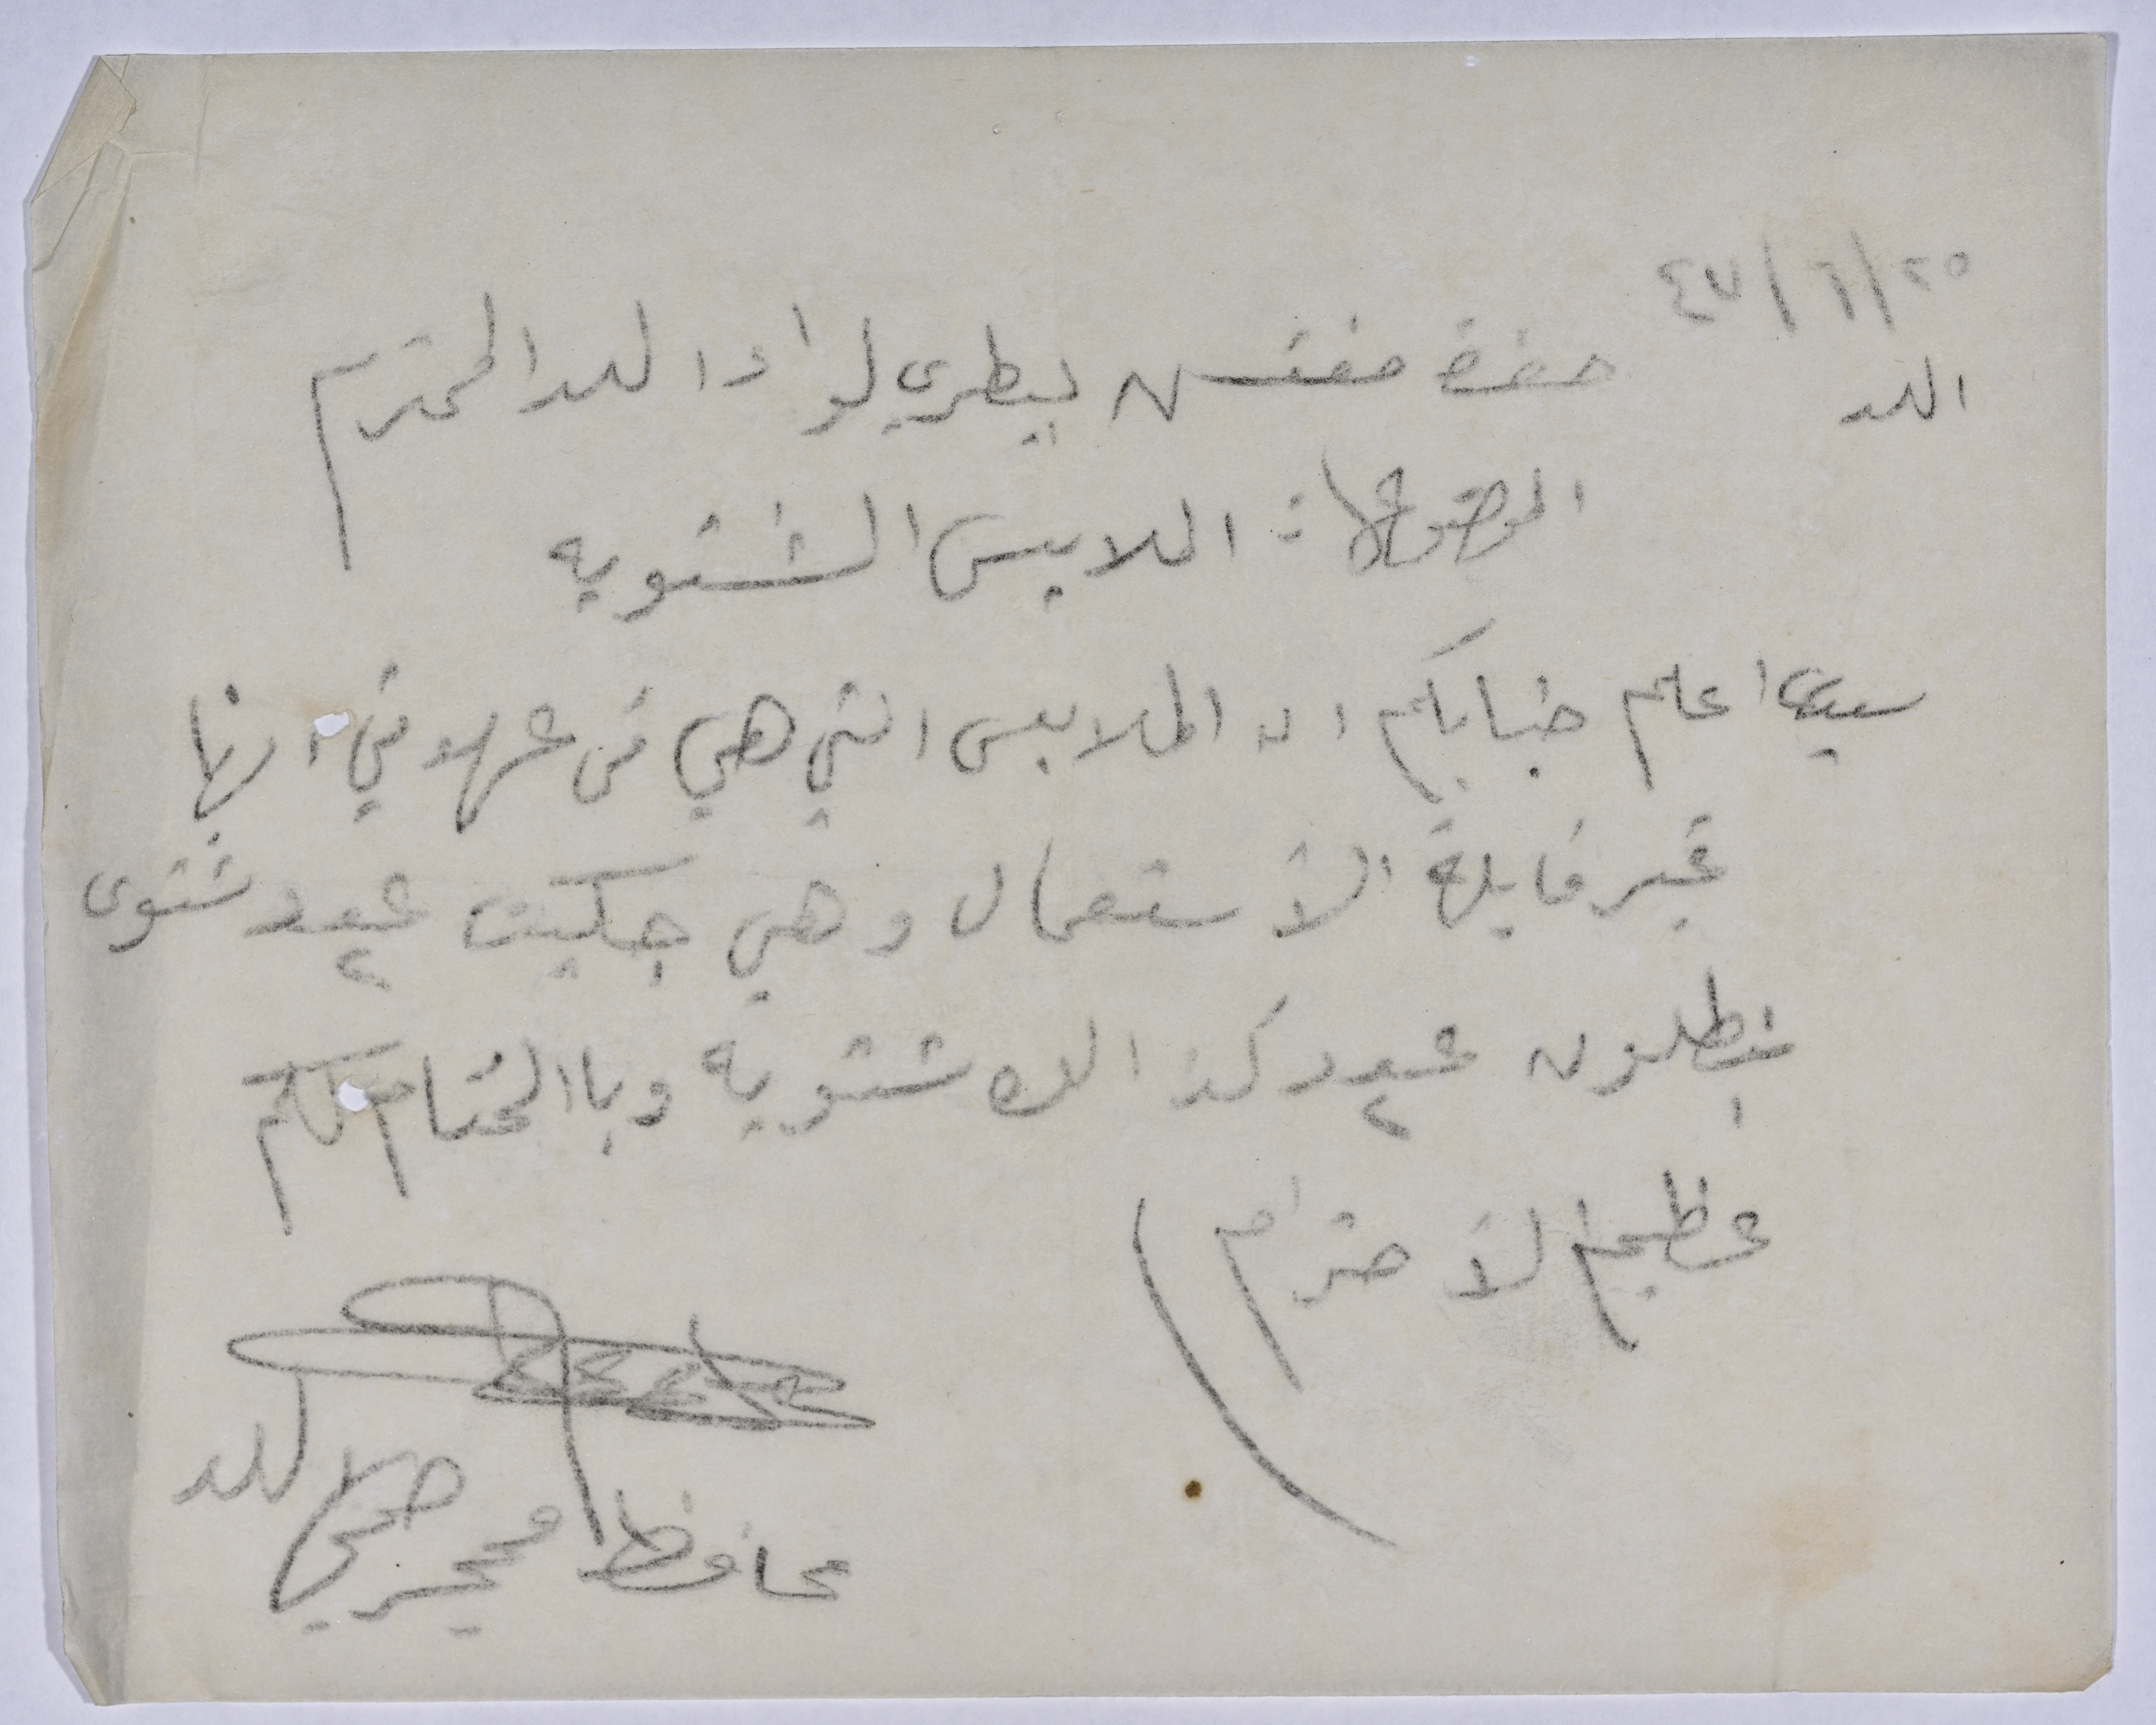 ٢٥/٦/٤٧
اللد
حضرة مفتش بيطري لواء اللد المحترم
الموضوع: الملابس الشتويه
سيدي اعلم جنابكم ان الملابس التي هي في عهدتي انها
غير قابلة الأستعمال وهي جكيت عدد ٢ شتوى
بنطلون عدد ٢ كذالك شتويه وبا الختام لكم
عظيم الأحترام
محافظ محجر صحي اللد